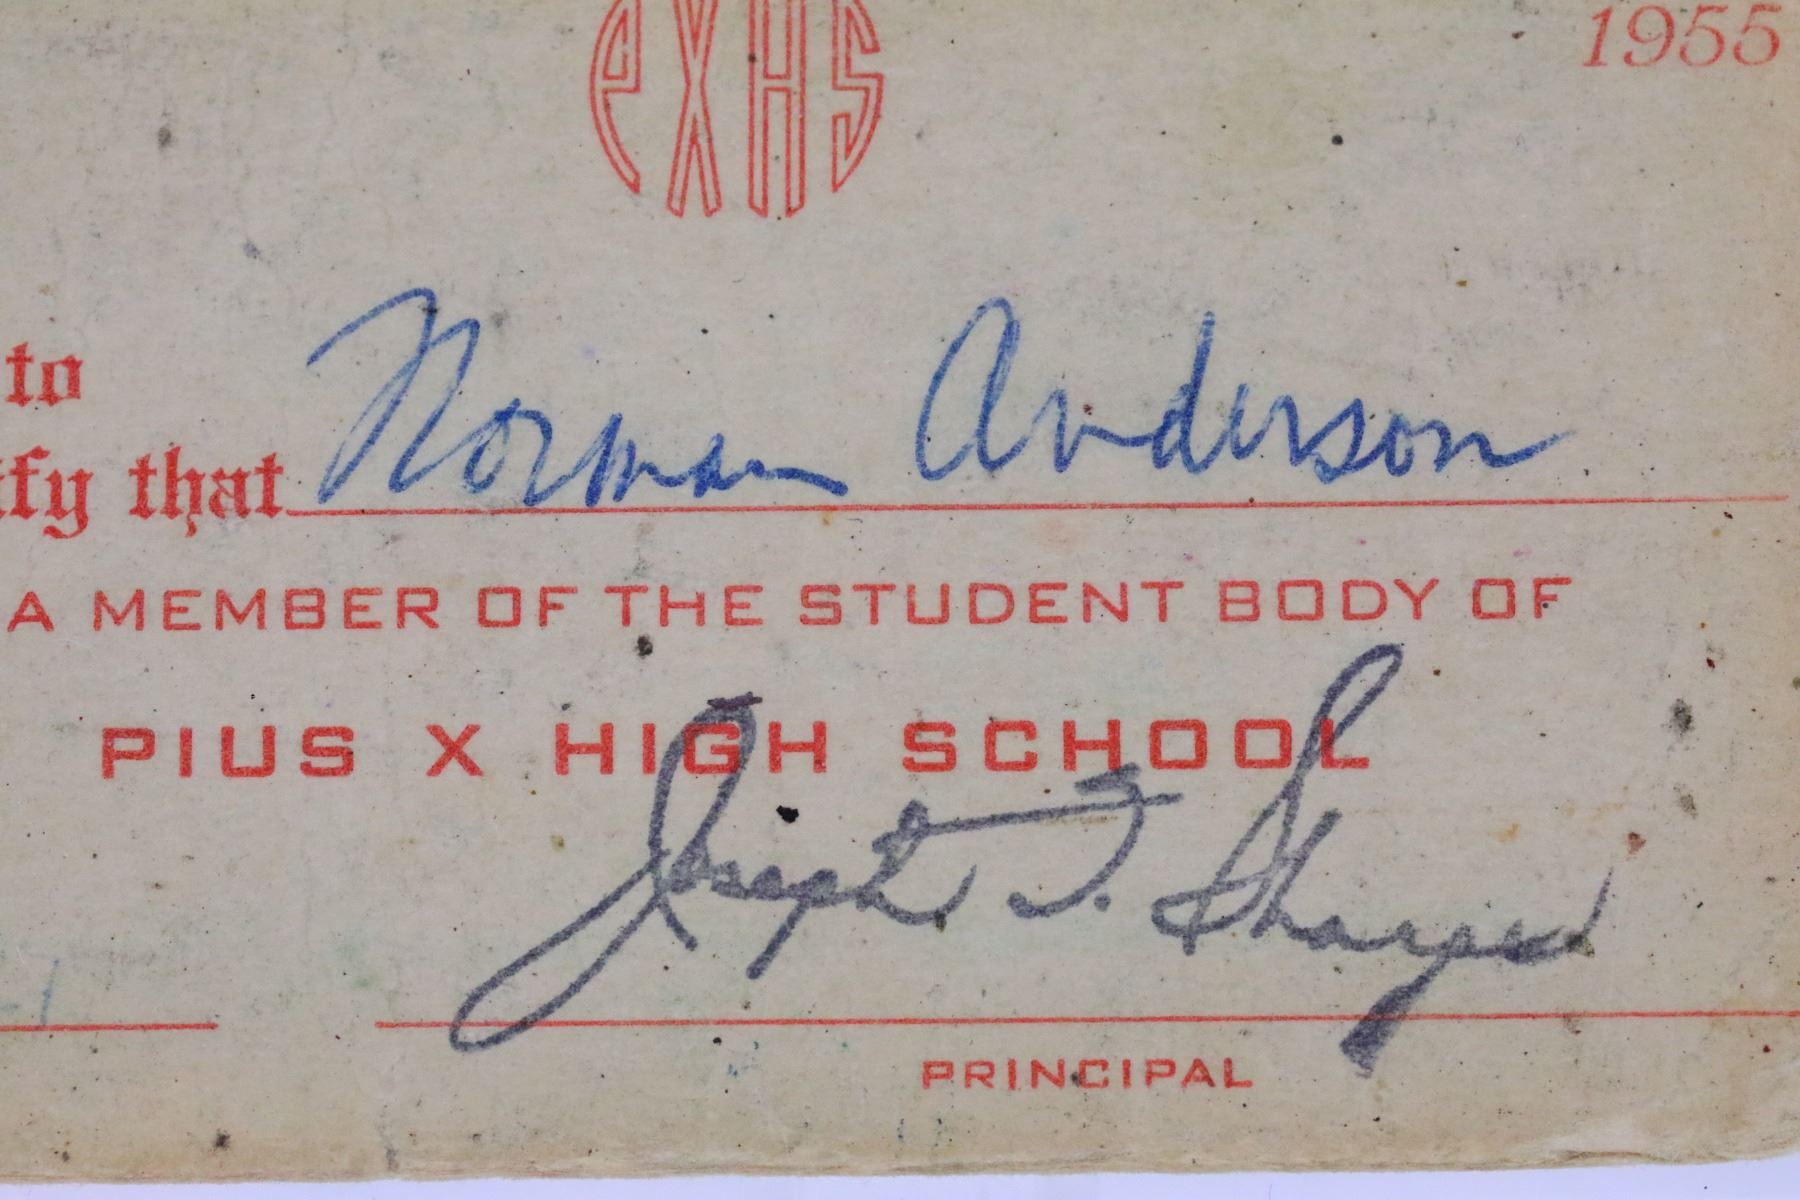 PXHS
1955
to
ify that Norman Anderson
A MEMBER OF THE STUDENT BODY OF
PIUS X HIGH SCHOOL
Joseph T.
PRINCIPAL